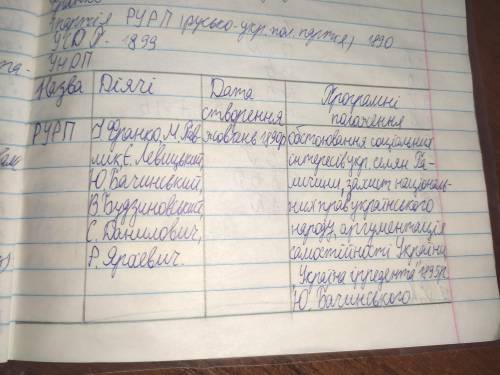 партія РУРП (русько-укр. пол. партія) 1890
УСДП - 1899
УНДП
Назва Діячі Дата створення Програмні положення
РУРП
І Франко, М. Пав-
лик, Є. Левицький,
Ю. Бачинський,
В. Будзиновський,
С. Данилович,
Р. Яросевич.
жовтень 1890р
обстоювання соціальних
інтересів укр. селян Га-
личини, захист національ-
них прав українського
народу, аргументація
самостійності України
"Україна ірредента" 1895р
Ю. Бачинського